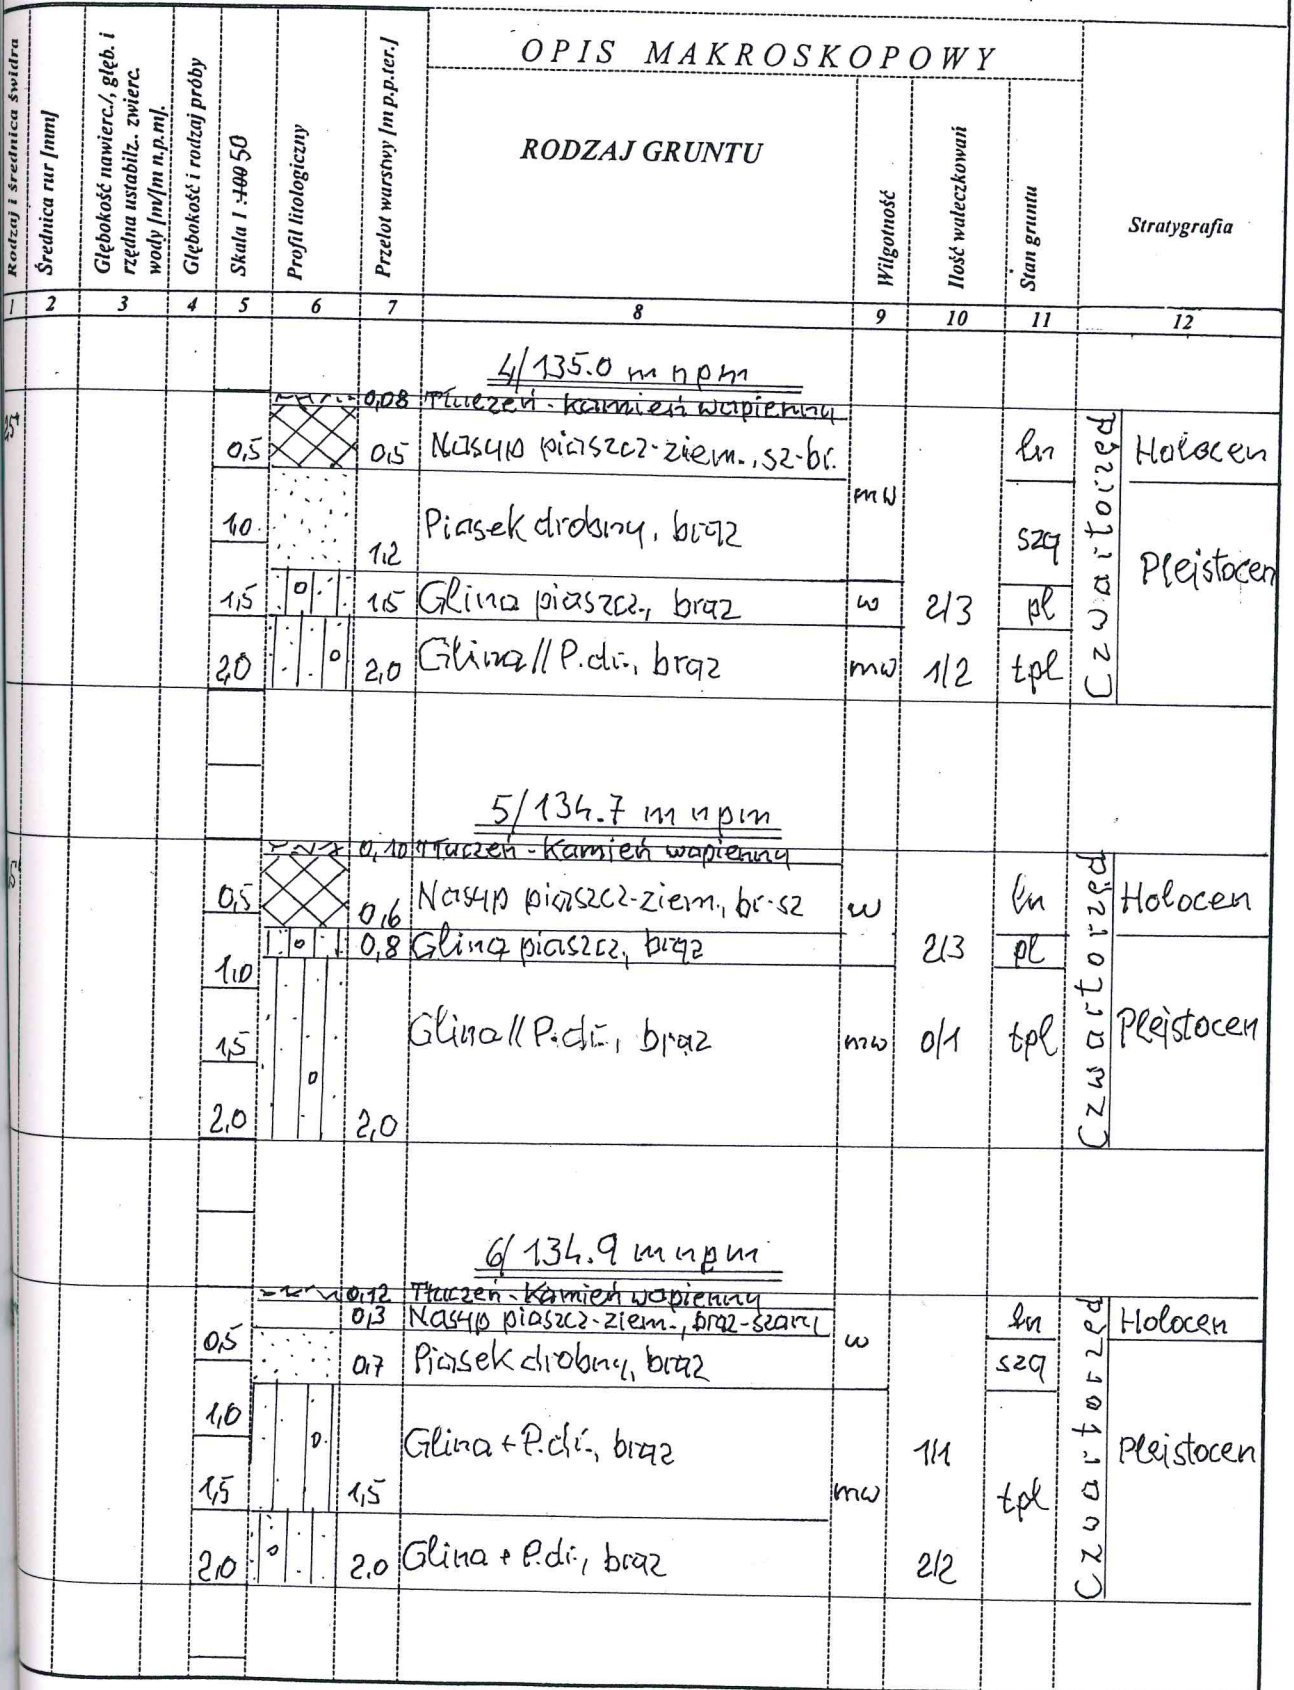 OPIS MAKROSKOPOWY
Rodzaj i średnica świdra
Średnica rur [mm]
Głębokość nawierc./, głęb. i
rzędna ustabilz.. zwierc.
wody [m/[m n.p.m].
Głębokość i rodzaj próby
Skala 1 :100 50
Profil litologiczny
Przelot warstwy [m p.p.ter.]
RODZAJ GRUNTU
Wilgotność
Ilość wałeczkowań
Stan gruntu
Stratygrafia
1 2 3 4 5 6 7 8 9 10 11 12
4/135.0 m npm
0,08 Tłuczeń - kamień wapienny
0,5 0,5 Nasyp piaszcz-ziem., sz-br. ln Holocen
mw
1,0 1,2 Piasek drobny, brąz szg Plejstocen
1,5 1,5 Glina piaszcz., brąz w 2/3 pl
2,0 2,0 Glina // P.dr., brąz mw 1/2 tpl
Czwartorzęd
5/134.7 m npm
0,10 Tłuczeń - Kamień wapienny
0,5 0,6 Nasyp piaszcz-ziem., br-sz w ln Holocen
0,8 Glina piaszcz, brąz 2/3 pl
1,0
1,5 Glina // P.dr., brąz mw 0/1 tpl Plejstocen
2,0 2,0
Czwartorzęd
6/134.9 m npm
0,12 Tłuczeń - Kamień wapienny
0,3 Nasyp piaszcz-ziem., brąz-szary ln Holocen
0,5 w
0,7 Piasek drobny, brąz szg
1,0 Glina + P.dr., brąz 1/1 Plejstocen
1,5 1,5 mw tpl
2,0 2,0 Glina + P.dr., brąz 2/2
Czwartorzęd